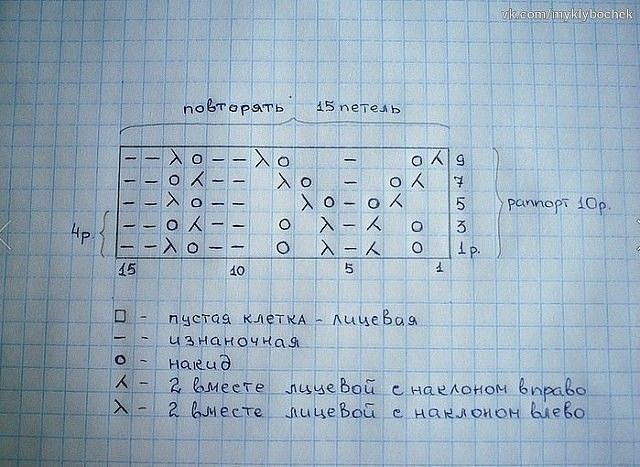 vk.com/myklybochek
повторять 15 петель
– – λ o – – λ o – o ⅄ 9
– – o ⅄ – – λ o – o ⅄ 7
– – λ o – – λ o – o ⅄ 5
– – o ⅄ – – o λ – ⅄ o 3
– – λ o – – o λ – ⅄ o 1р.
4р.
раппорт 10р.
15 10 5 1
□ – пустая клетка – лицевая
– – изнаночная
o – накид
⅄ – 2 вместе лицевой с наклоном вправо
λ – 2 вместе лицевой с наклоном влево